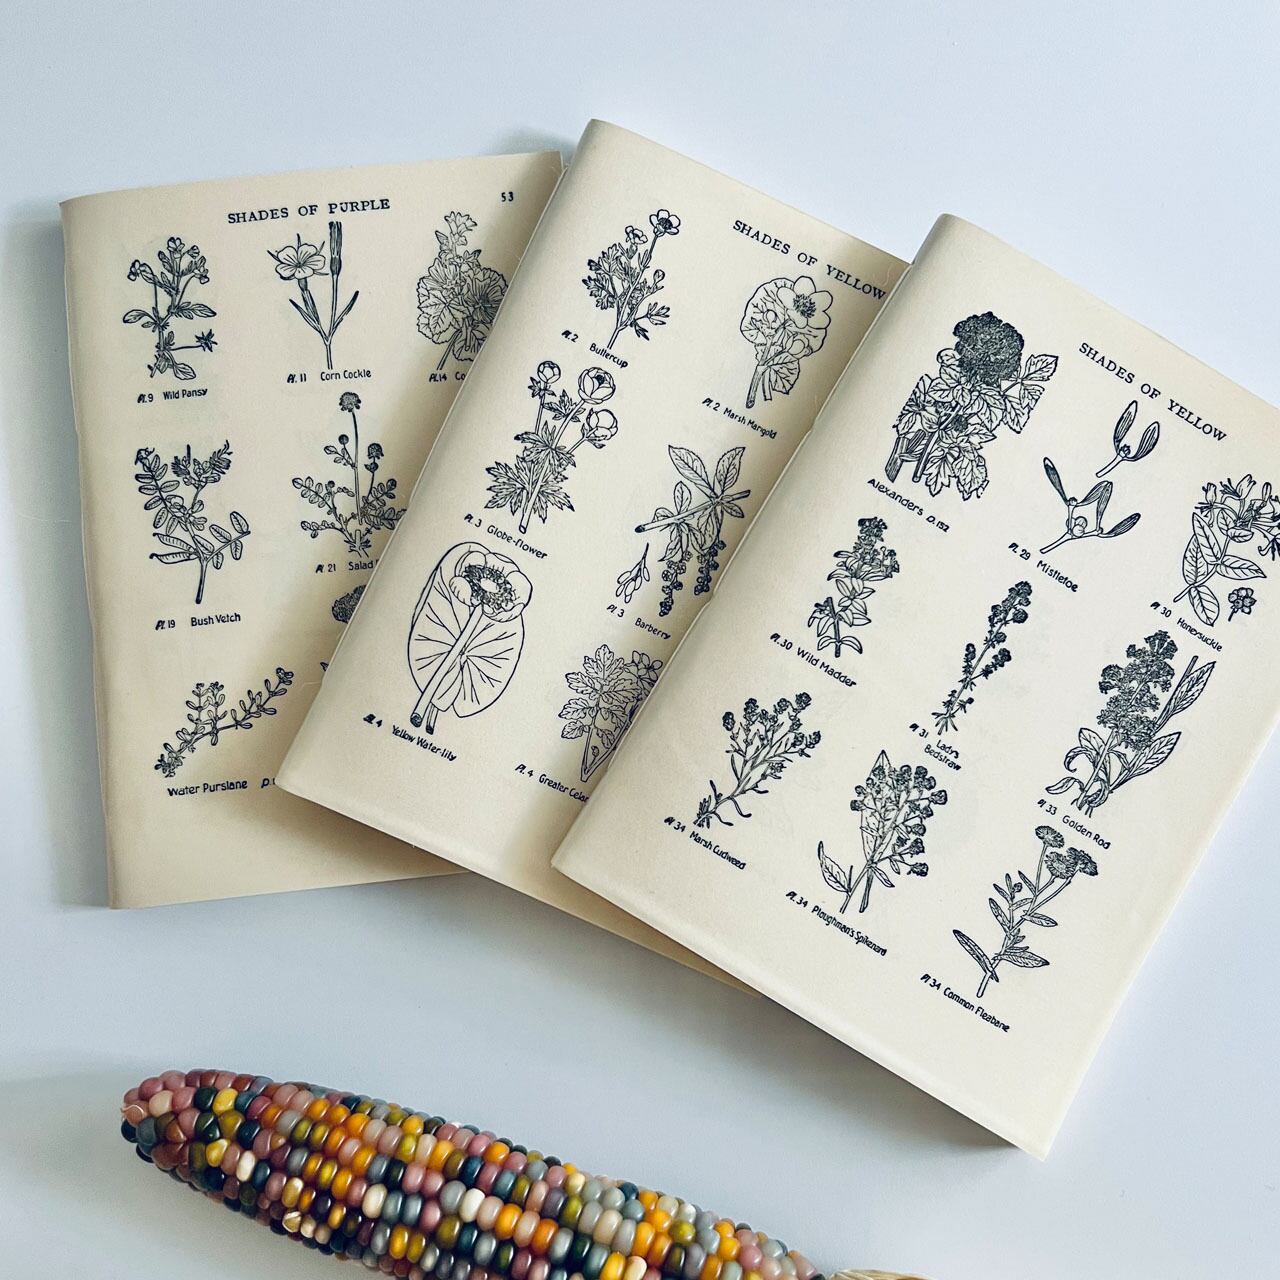 SHADES OF PURPLE
53
Pl. 9 Wild Pansy
Pl. 11 Corn Cockle
Pl. 14
Pl. 19 Bush Vetch
Pl. 21 Salad
Water Purslane
SHADES OF YELLOW
Pl. 2 Buttercup
Pl. 2 Marsh Marigold
Pl. 3 Globe-flower
Pl. 3 Barberry
Pl. 4 Yellow Water-lily
Pl. 4 Greater
SHADES OF YELLOW
Alexanders p.152
Pl. 29 Mistletoe
Pl. 30 Honeysuckle
Pl. 30 Wild Madder
Pl. 31 Lady's
Bedstraw
Pl. 33 Golden Rod
Pl. 34 Marsh Cudweed
Pl. 34 Ploughman's Spikenard
Pl. 34 Common Fleabane